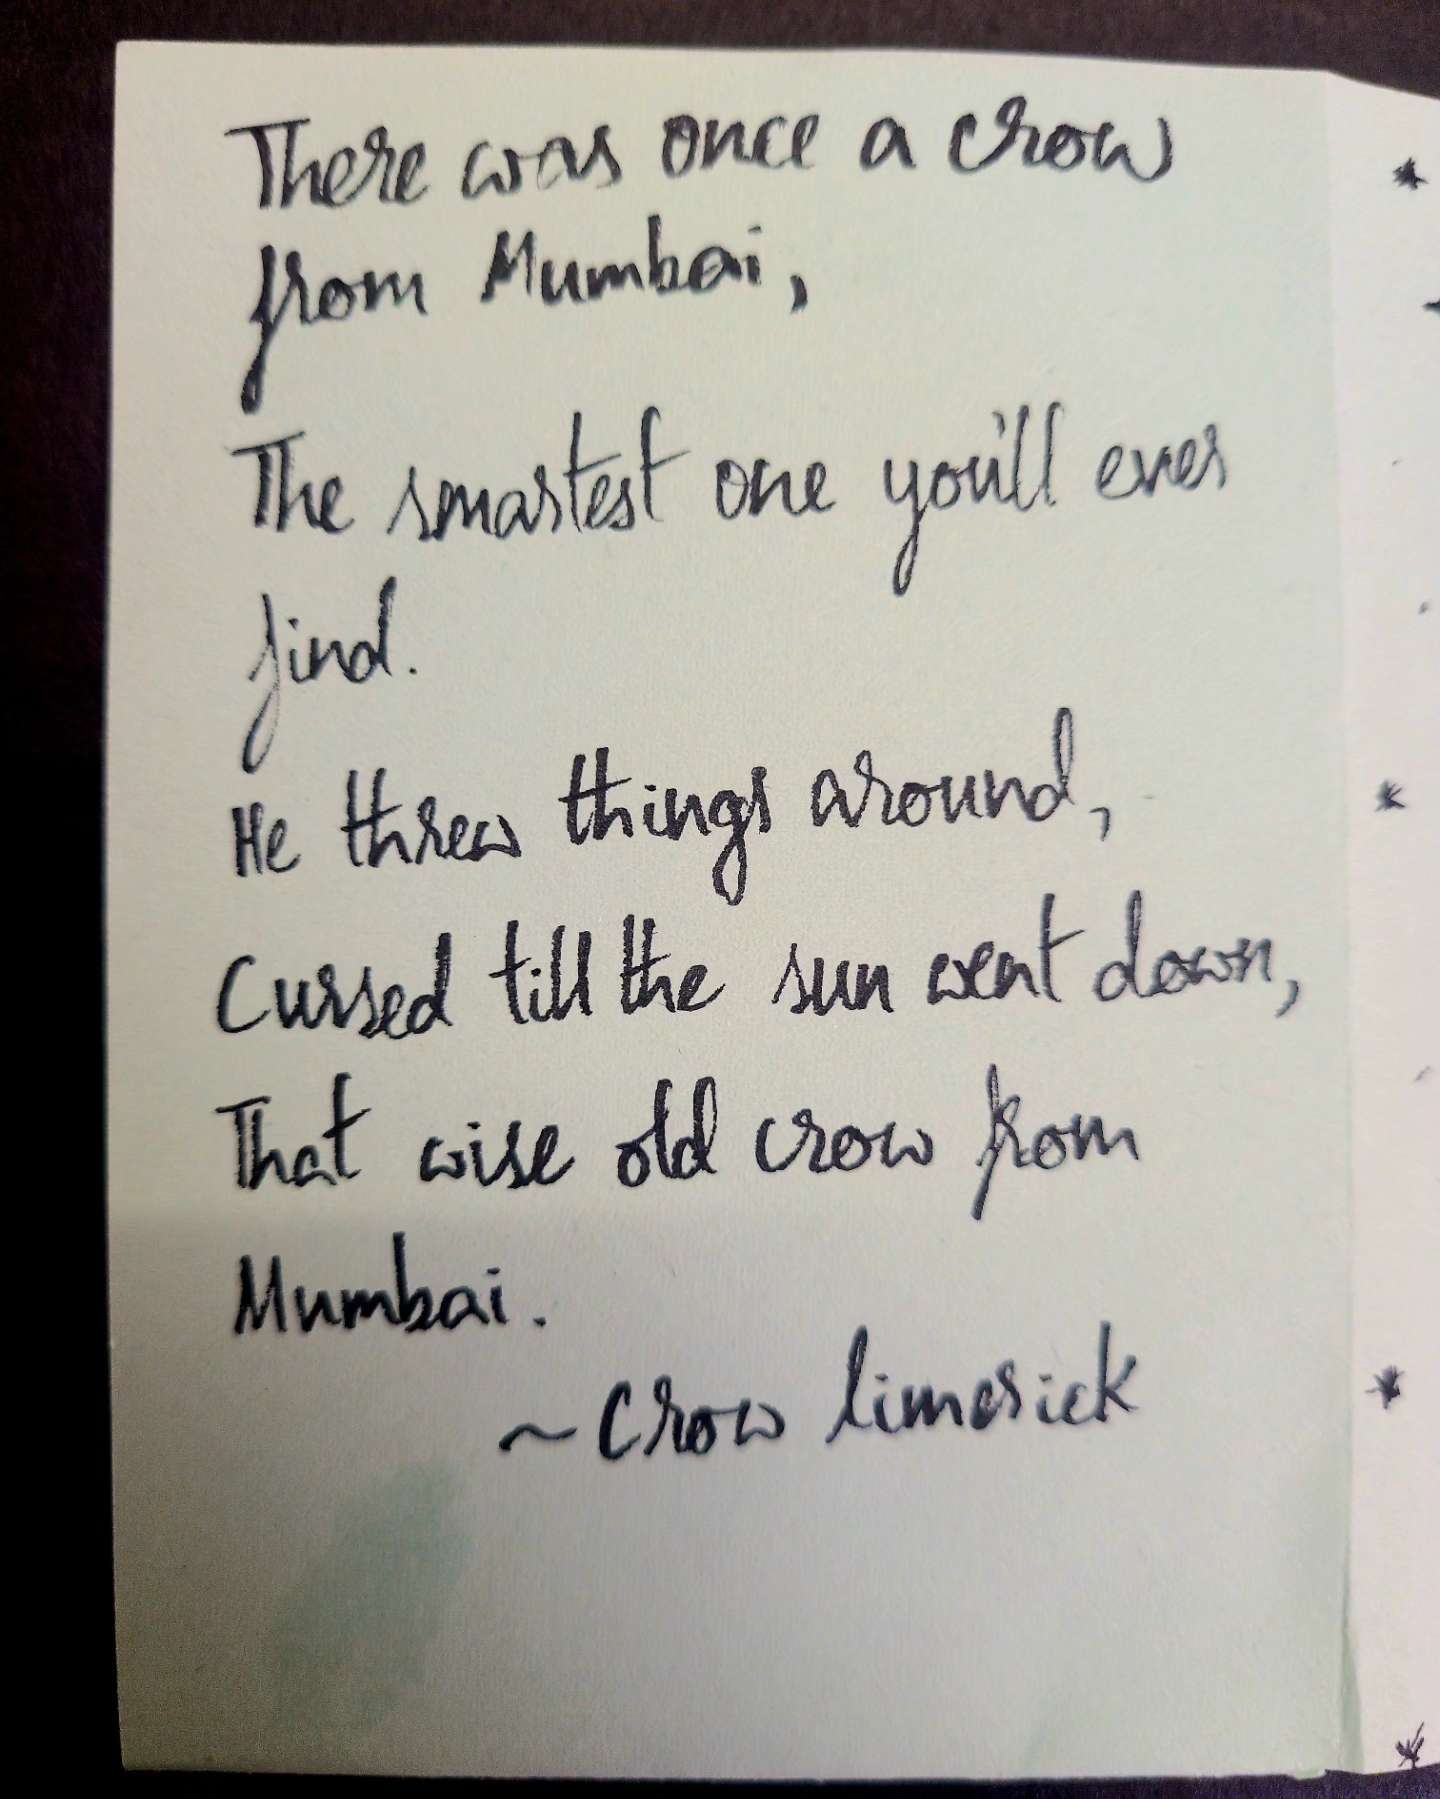 There was once a crow
from Mumbai,
The smartest one you'll ever
find.
He threw things around,
Cursed till the sun went down,
That wise old crow from
Mumbai.
~ Crow limerick